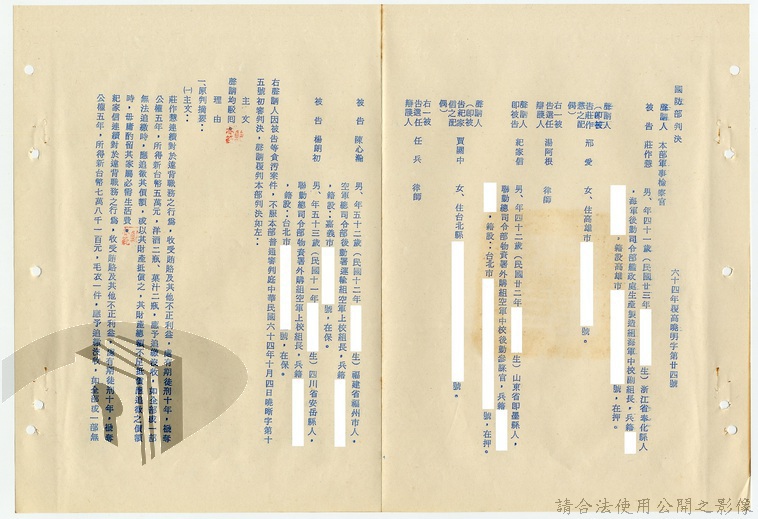 國防部判決
六十四年覆高曉明字第廿四號
聲請人 本部軍事檢察官
被告 莊作慧
男、年四十一歲(民國廿三年 生)浙江省奉化縣人
,海軍後勤司令部艦政處生產製造組海軍中校副組長,兵籍
,籍設高雄市 號,在押。
聲請人
(即被
告莊作
慧之配
偶) 邢愛 女、住高雄市 號。
右一被
告選任
辯護人 湯阿根 律師
聲請人
即被告 紀家信
男、年四十二歲(民國廿二年 生)山東省即墨縣人,
聯勤總司令部物資署外購組空軍中校後勤參謀官,兵籍
,籍設:台北市 號,在押。
聲請人
(即被
告紀家
信之配
偶) 賈國中 女、住台北縣 號。
右一被
告選任
辯護人 任兵 律師
被告 陳心瀚
男、年五十二歲(民國十二年 生)福建省福州市人,
空軍總司令部後勤署運輸組空軍上校組長,兵籍
,籍設:嘉義市 號,在保。
被告 楊朗初
男、年五十三歲(民國十一年 生)四川省安岳縣人,
聯勤總司令部物資署外購組空軍上校組長,兵籍
,籍設:台北市 號,在保。
右聲請人因被告等貪污案件,不服本部普通審判庭中華民國六十四年十月四日曉晰字第十
五號初審判決,聲請覆判本部判決如左:
主文
聲請均駁回
理由
一、原判摘要:
㈠主文:
莊作慧連續對於違背職務之行為,收受賄賂及其他不正利益,處有期徒刑十年,褫奪
公權五年,所得新台幣五萬元,洋酒二瓶、菓汁二瓶,應予追繳沒收,如全部或一部
無法追繳時,應追徵其價額,或以其財產抵償之,其財產總額不足抵償應追徵之價額
時,毋庸酌留其家屬必需生活費。
紀家信連續對於違背職務之行為,收受賄賂及其他不正利益,處有期徒刑十年,褫奪
公權五年,所得新台幣七萬八千一百元,毛衣一件,應予追繳沒收,如全部或一部無
請合法使用公開之影像